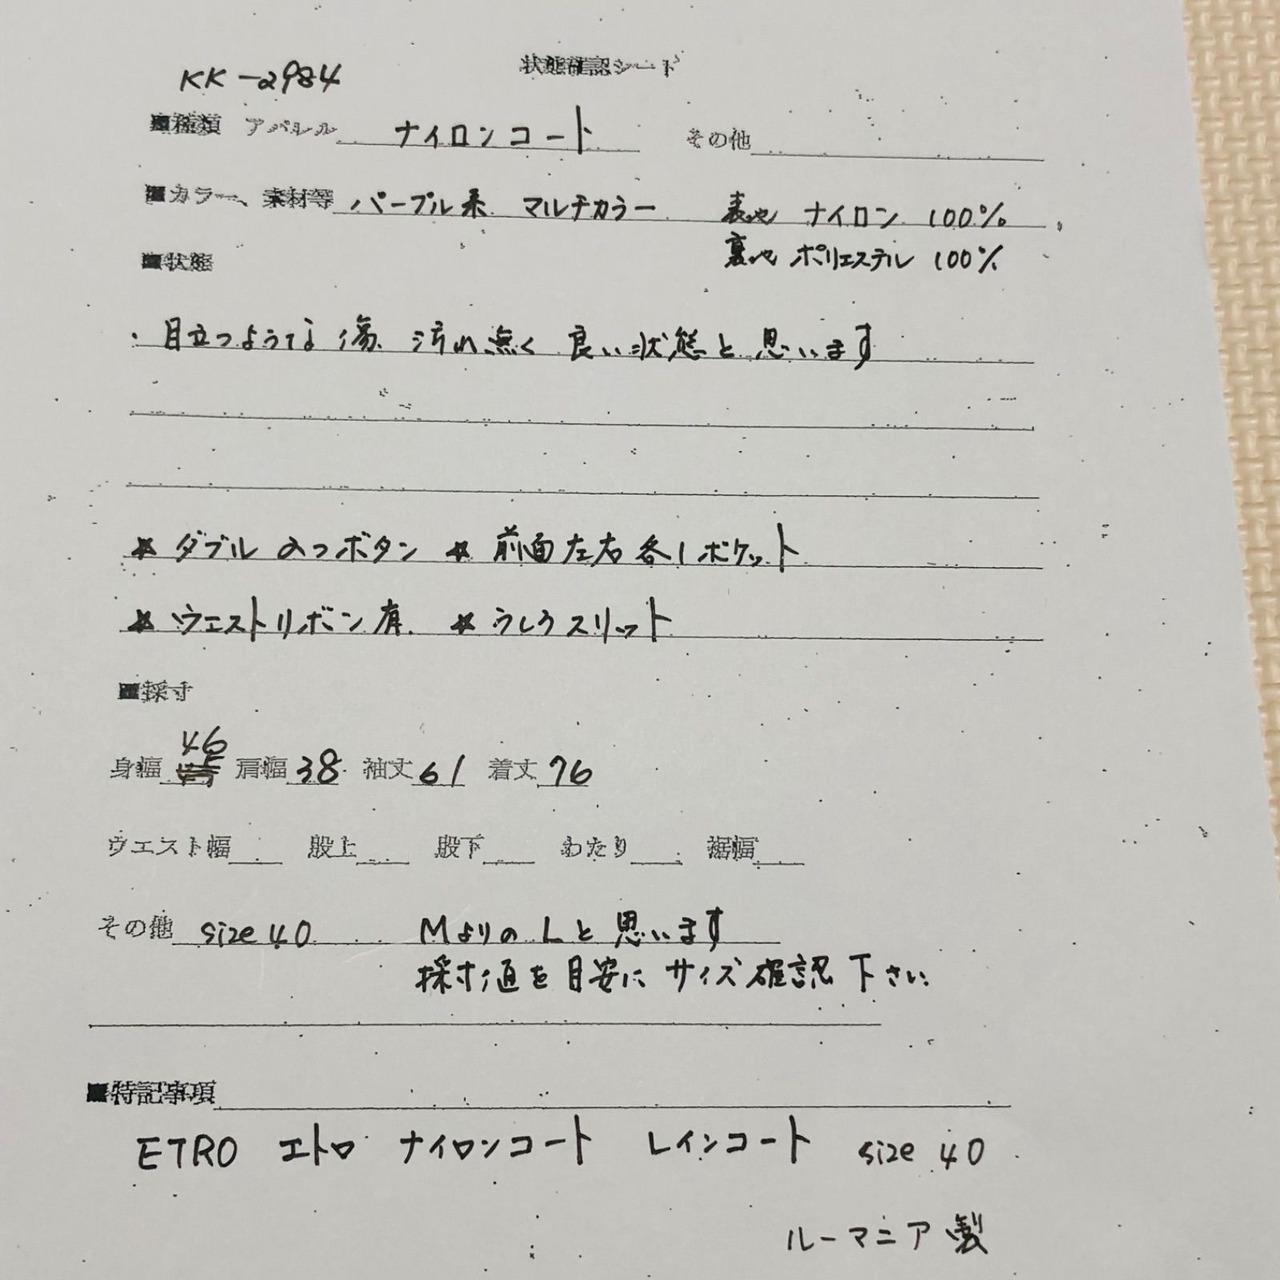 KK-2984
状態確認シート
■種類 アパレル ナイロンコート その他
■カラー、素材等 パープル系 マルチカラー 表地 ナイロン 100%
裏地 ポリエステル 100%
■状態
・目立つような傷、汚れ無く 良い状態と思います
★ダブル 2つボタン ★前面左右各1ポケット
★ウエストリボン有 ★うしろスリット
■採寸
身幅 46 肩幅 38 袖丈 61 着丈 76
ウエスト幅 股上 股下 わたり 裾幅
その他 size 40 MよりのLと思います
採寸値を目安にサイズ確認下さい
■特記事項
ETRO エトロ ナイロンコート レインコート size 40
ルーマニア製